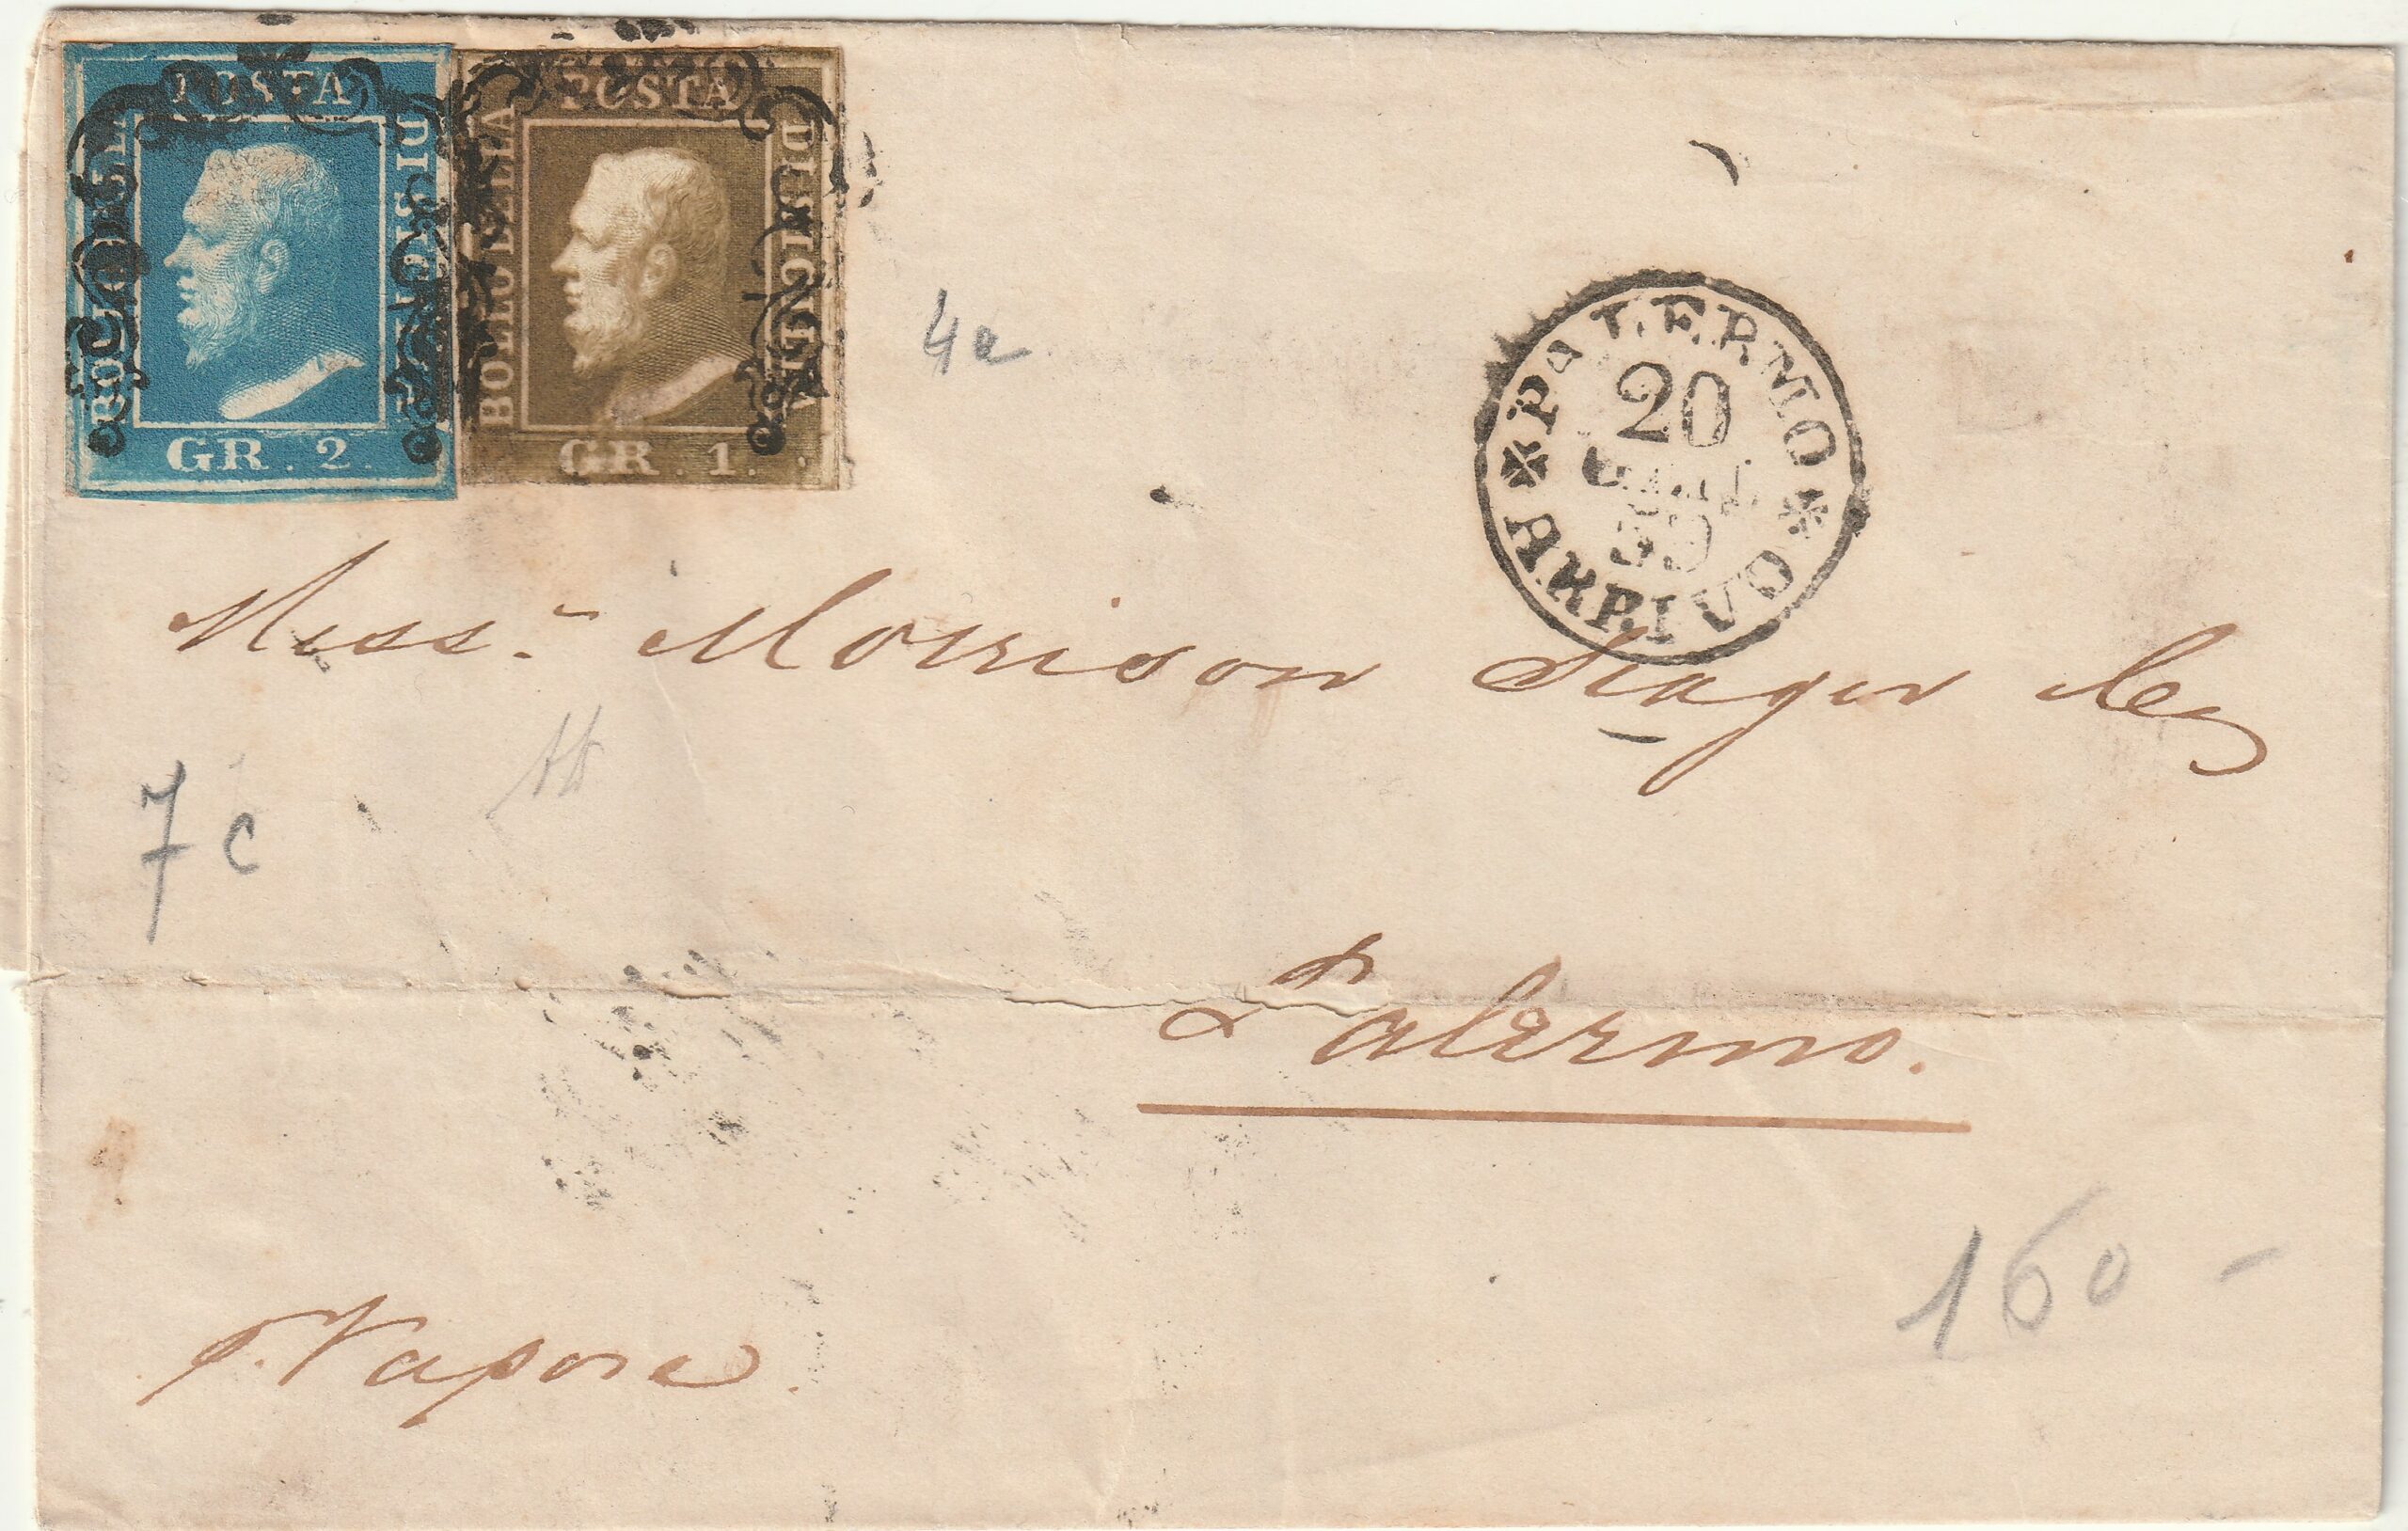 POSTA
BOLLO DELLA
DI SICILIA
GR. 2.
POSTA
BOLLO DELLA
DI SICILIA
GR. 1.
4a
PaLERMO
20
59
ARRIVO
Mess.rs Morrison Seager & Co
7c
Palermo.
p. Vapore.
160 -